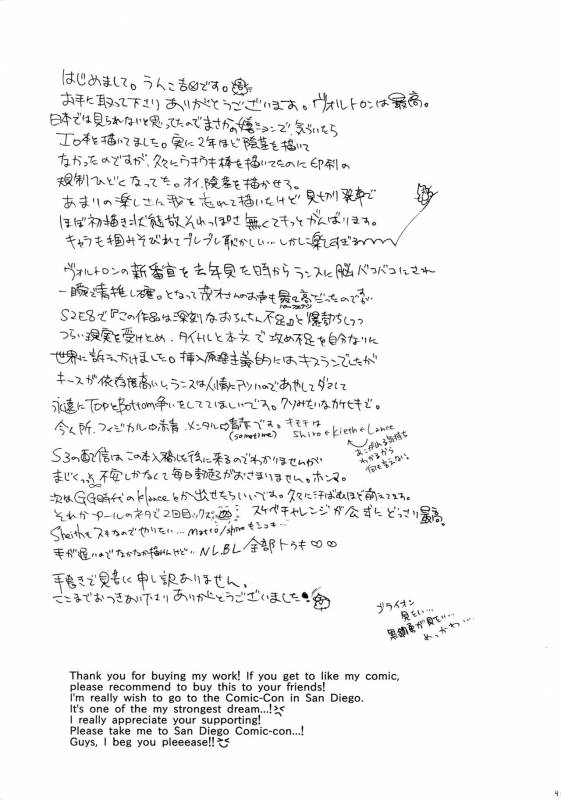 はじめまして。うんこ吉です。
お手に取って下さり ありがとうございます。ヴォルトロンは最高。
日本では見られないと思ってたのでまさかの で、気づいたら
エロ本を描いてました。実に2年ほど陰茎を描いて
なかったのですが、久々にウキウキ棒を描いてたのに印刷の
規制ひどくなってた。オイ、陰茎を描かせろ。
あまりの楽しさん我を忘れて描いたけど 見切り発車で
ほぼ初描き状態故それっぽさ無くてもっとがんばります。
キャラも掴みそびれてプレプレ恥かしい…しかし楽しすぎる
ヴォルトロンの新番宣を去年見た時からランスに脳バコバコにされ
一瞬で青推し確。となって茂木さんのお声も最高だったのです
S2E8で『この作品は深刻なおちんちん不足』と爆発しつつ
つらい現実を受けとめ、タイトルと本文で攻め不足を自分なりに
世界に訴えかけました。挿入原理主義的にはキスランでしたが
キースが依存度高いし、ランスは人情に で
永遠にTopとBottom争いをしててほしいです。クソみたいなカケヒキで。
今ん所、フィジカル→赤青、メンタル→青赤です。
(sometime)
キモチは
Shiro←Kieth←Lance
あこがれる気持ち
わかるから
何も言えない
S3の配信はこの本入稿した後に来るのでわかりませんが
まじくっそ不安しかなくて毎日動悸がおさまりません。ホンマ。
次は 時代のklanceとか出せたらいいです。久々に汗ばむほど萌えてます。
それかプールのネタで2回目 スケベチャレンジが公式にどっさり最高。
Sheithもスキなのでやりたい… Matto/shiroも
手が遅いのでなかなか描けんけど… NL.BL 全部トゥキ ♡♡
手書きで見苦に申し訳ありません。
ここまでおつきあい下さり ありがとうございました
ゴライオン
見たい…
黒鋼勇が見たい…
めっかわっ…
Thank you for buying my work! If you get to like my comic,
please recommend to buy this to your friends!
I'm really wish to go to the Comic-Con in San Diego.
It's one of the my strongest dream...!
I really appreciate your supporting!
Please take me to San Diego Comic-con...!
Guys, I beg you pleeease!!
4